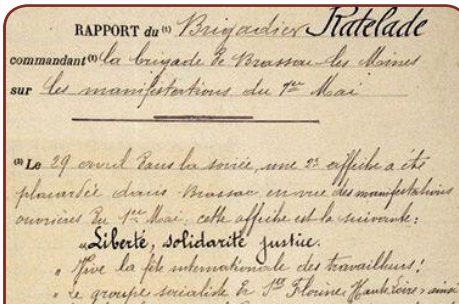 RAPPORT du (1) Brigadier Ratelade
commandant (2) la brigade de Brassac-les Mines
sur les manifestations du 1er Mai
(3) Le 29 avril dans la soirée, une 2e affiche a été
placardée dans Brassac en vue des manifestations
ouvrières du 1er Mai; cette affiche est la suivante:
"Liberté, solidarité justice.
" Vive la fête internationale des travailleurs!
" Le groupe socialiste de Ste Florine, Haute Loire, ainsi